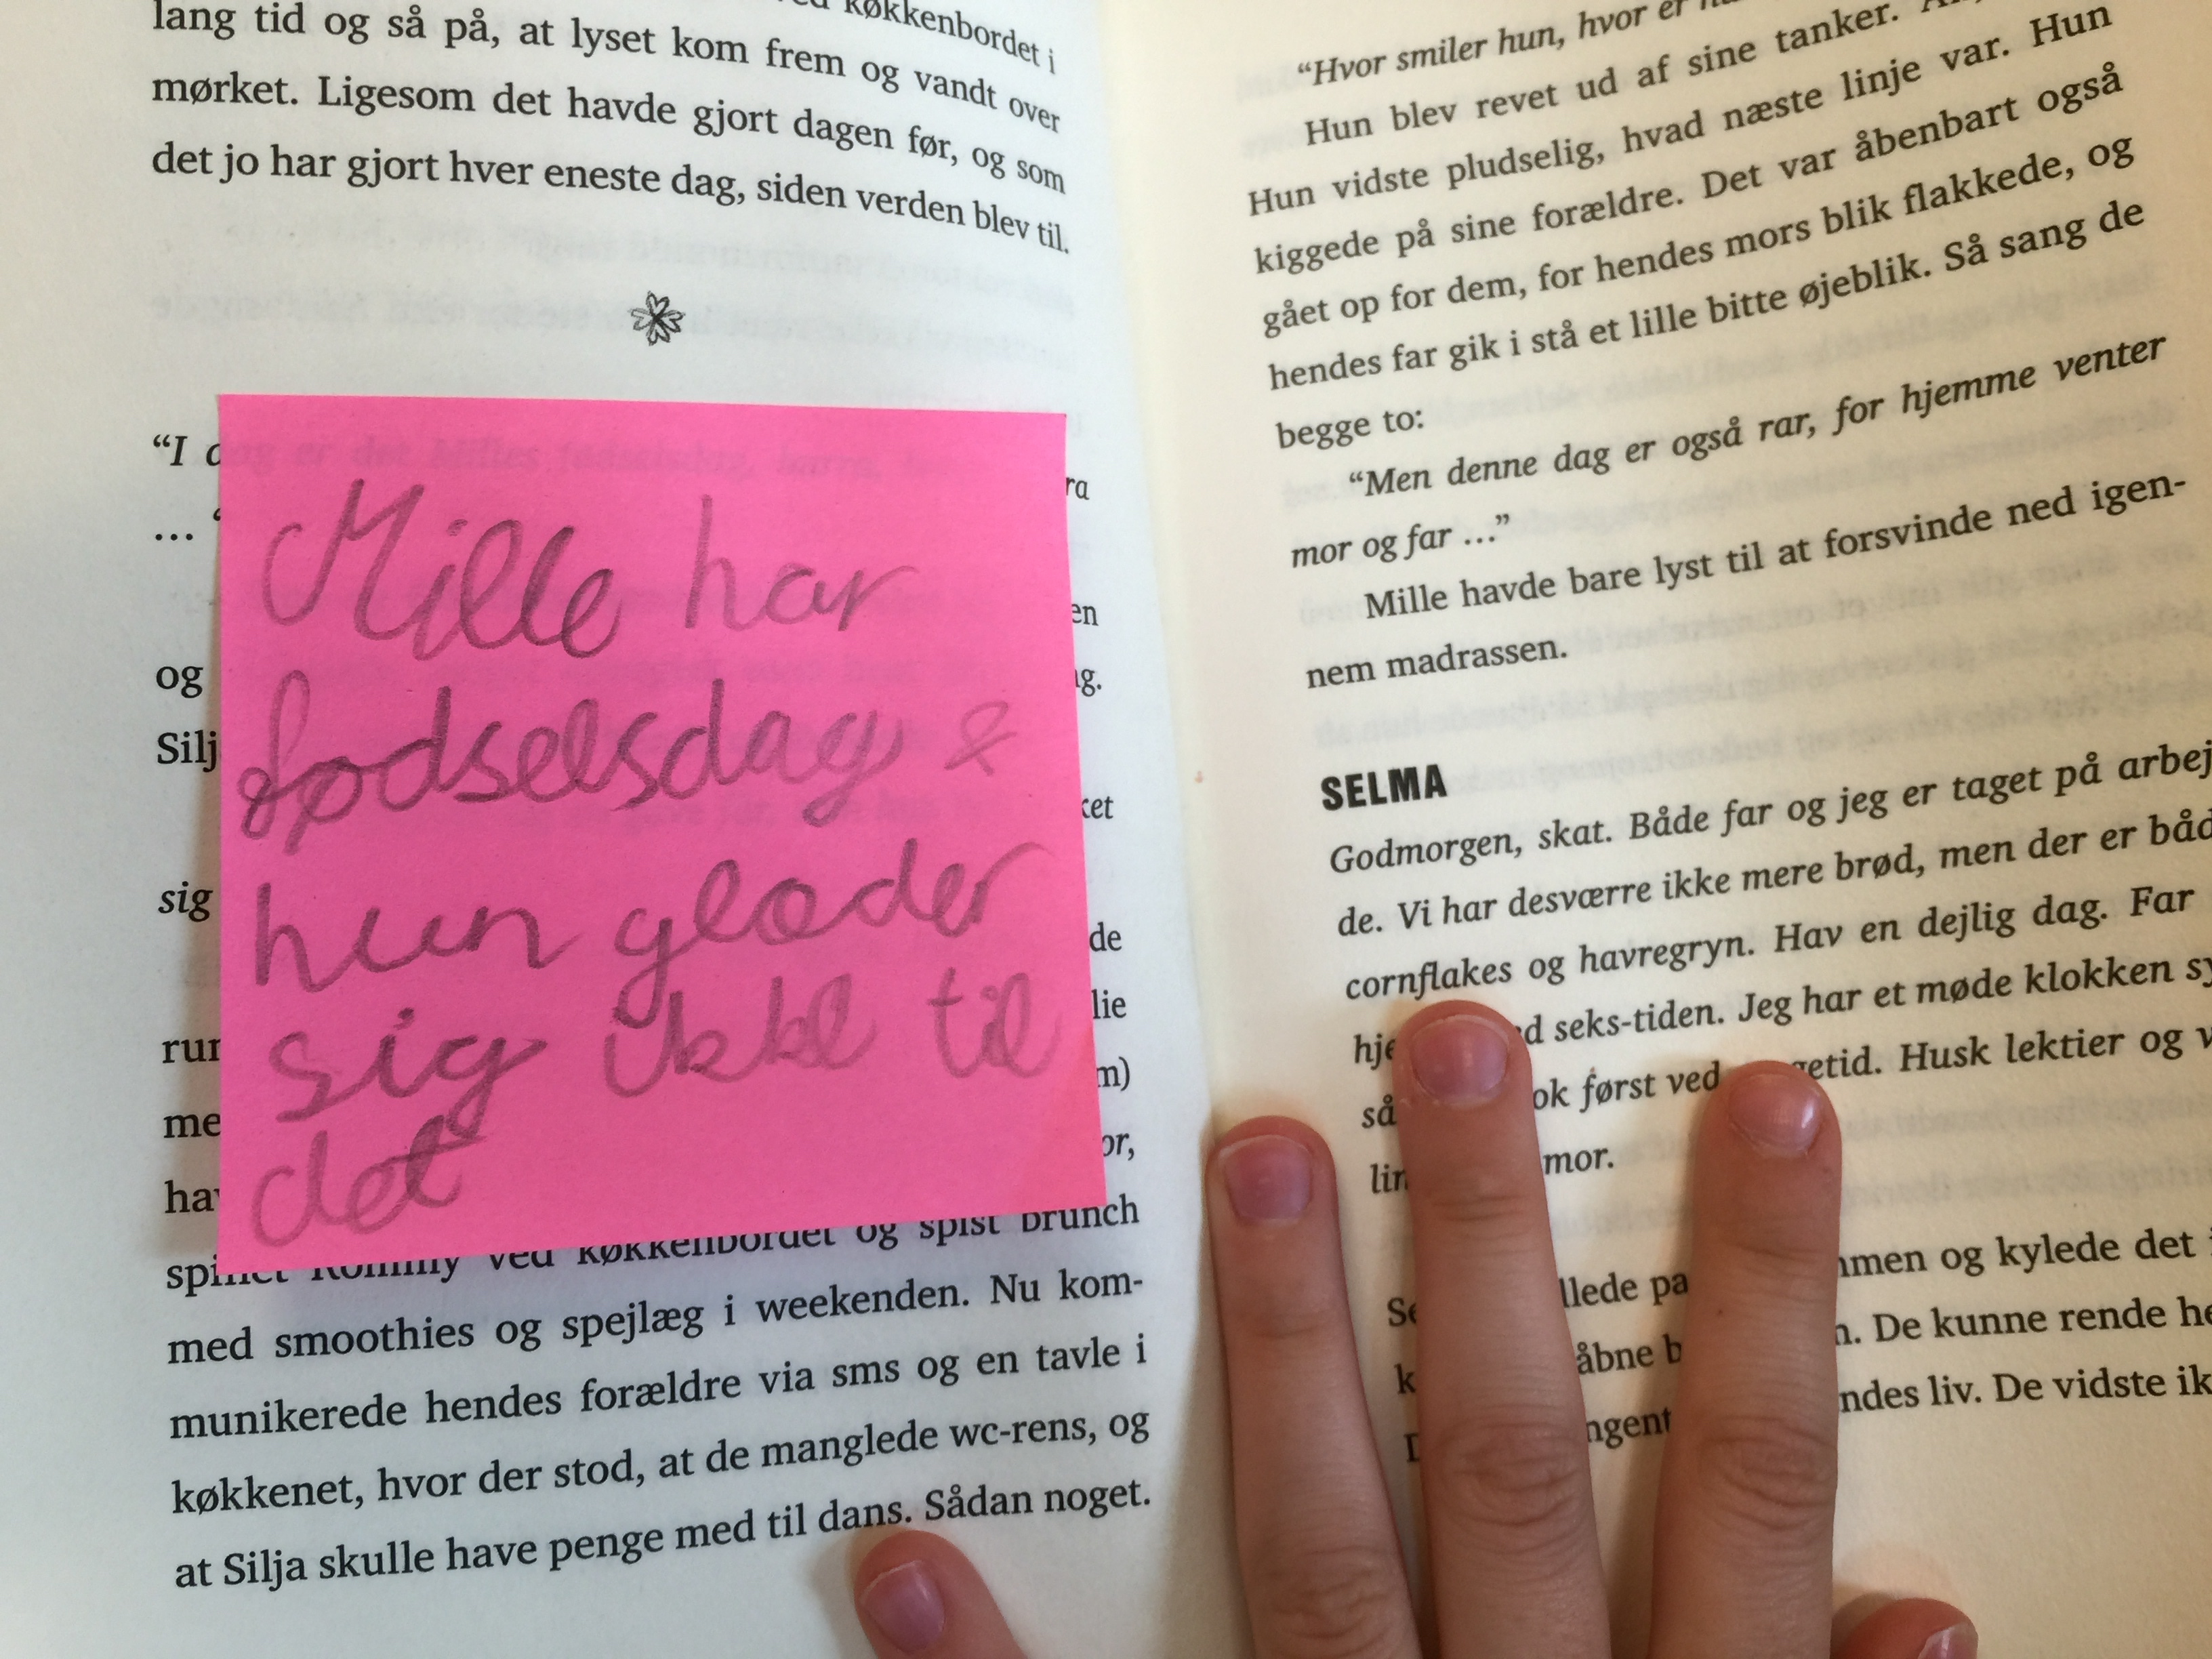 køkkenbordet i
lang tid og så på, at lyset kom frem og vandt over
mørket. Ligesom det havde gjort dagen før, og som
det jo har gjort hver eneste dag, siden verden blev til.
“I
...
og
Silj
sig
Mille har
fødselsdag &
hun glæder
sig ikke til
det
ra
en
de
lie
m)
or,
ved køkkenbordet og spist brunch
med smoothies og spejlæg i weekenden. Nu kom-
munikerede hendes forældre via sms og en tavle i
køkkenet, hvor der stod, at de manglede wc-rens, og
at Silja skulle have penge med til dans. Sådan noget.
“Hvor smiler hun, hvor er
Hun blev revet ud af sine tanker.
Hun vidste pludselig, hvad næste linje var. Hun
kiggede på sine forældre. Det var åbenbart også
gået op for dem, for hendes mors blik flakkede, og
hendes far gik i stå et lille bitte øjeblik. Så sang de
begge to:
“Men denne dag er også rar, for hjemme venter
mor og far ...”
Mille havde bare lyst til at forsvinde ned igen-
nem madrassen.
SELMA
Godmorgen, skat. Både far og jeg er taget på arbej
de. Vi har desværre ikke mere brød, men der er båd
cornflakes og havregryn. Hav en dejlig dag. Far
hje d seks-tiden. Jeg har et møde klokken sy
så ok først ved getid. Husk lektier og v
lin mor.
llede pa mmen og kylede det i
åbne b n. De kunne rende he
ngent ndes liv. De vidste ik